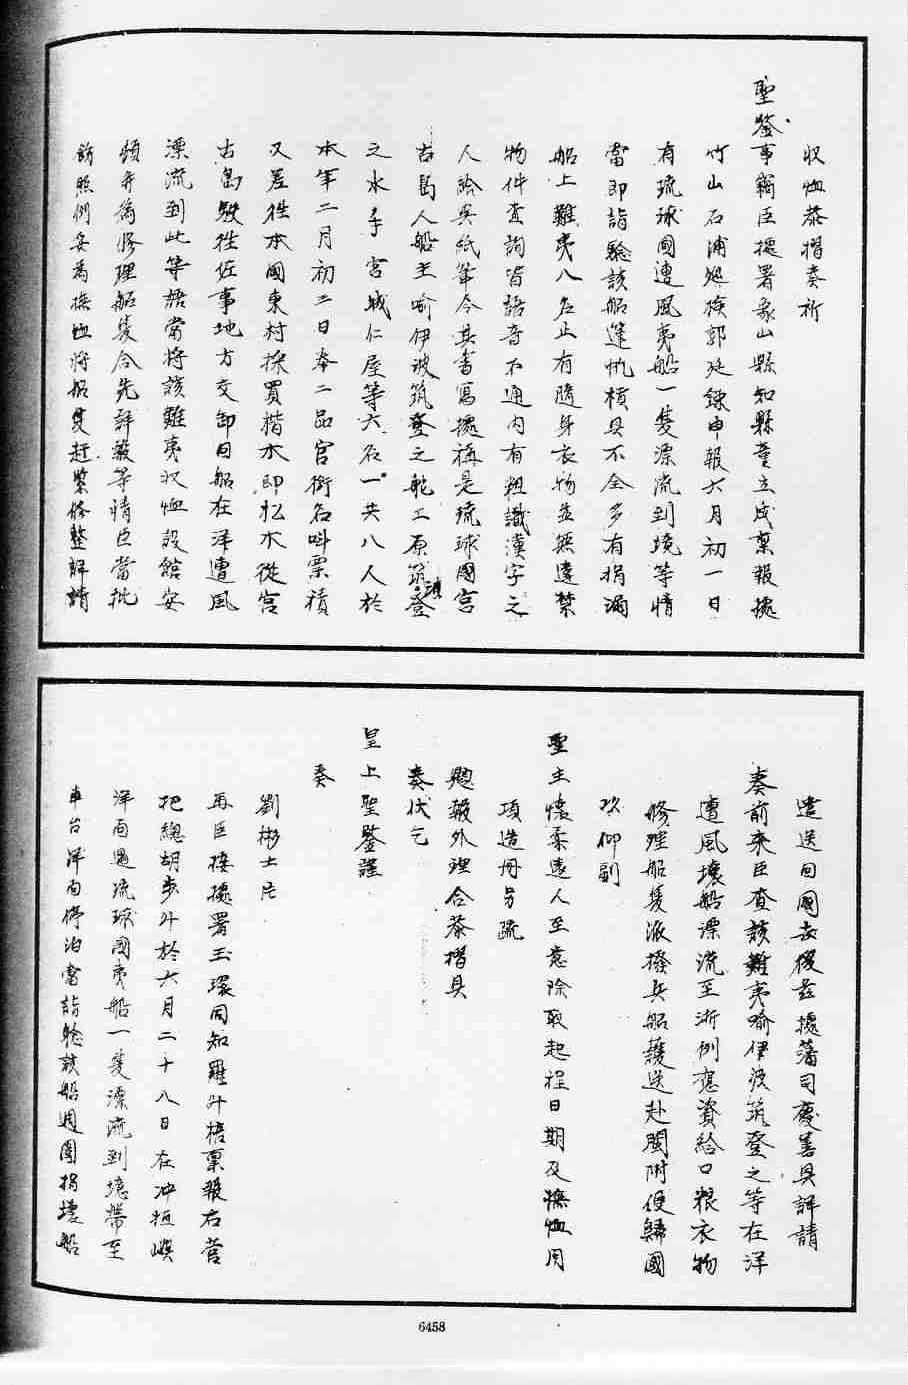 收恤恭摺奏祈
聖鑒事竊臣據署象山縣知縣童立成稟報據
竹山石浦巡檢郭廷錄申報六月初一日
有琉球國遭風夷船一隻漂流到境等情
當即詣驗該船篷帆槓具不全多有損漏
船上難夷八名止有隨身衣物並無違禁
物件查詢皆語音不通內有粗識漢字之
人給與紙筆令其書寫據稱是琉球國宮
古島人船主喻伊波筑登之舵工原筑登
之水手宮城仁屋等六名一共八人於
本年二月初二日奉二品官銜名叫票積
又差往本國東村採買楷木即松木從宮
古島駛往佐事地方交卸因船在洋遭風
漂流到此等語當將該難夷收恤設館安
頓并為修理船隻合先詳報等情臣當批
飭照例妥為撫恤將船隻趕緊修整詳請
遣送回國去後茲據藩司慶善具詳請
奏前來臣查該難夷喻伊波筑登之等在洋
遭風壞船漂流至浙例應資給口糧衣物
修理船隻派撥兵船護送赴閩附便歸國
以仰副
聖主懷柔遠人至意除取起程日期及撫恤用
項造冊另疏
題報外理合恭摺具
奏伏乞
皇上聖鑒謹
奏
劉彬士片
再臣接據署玉環同知羅升梧稟報右營
把總胡步升於六月二十八日在沖担嶼
洋面遇琉球國夷船一隻漂流到境帶至
車台洋面停泊當詣驗該船週圍損壞船
6458